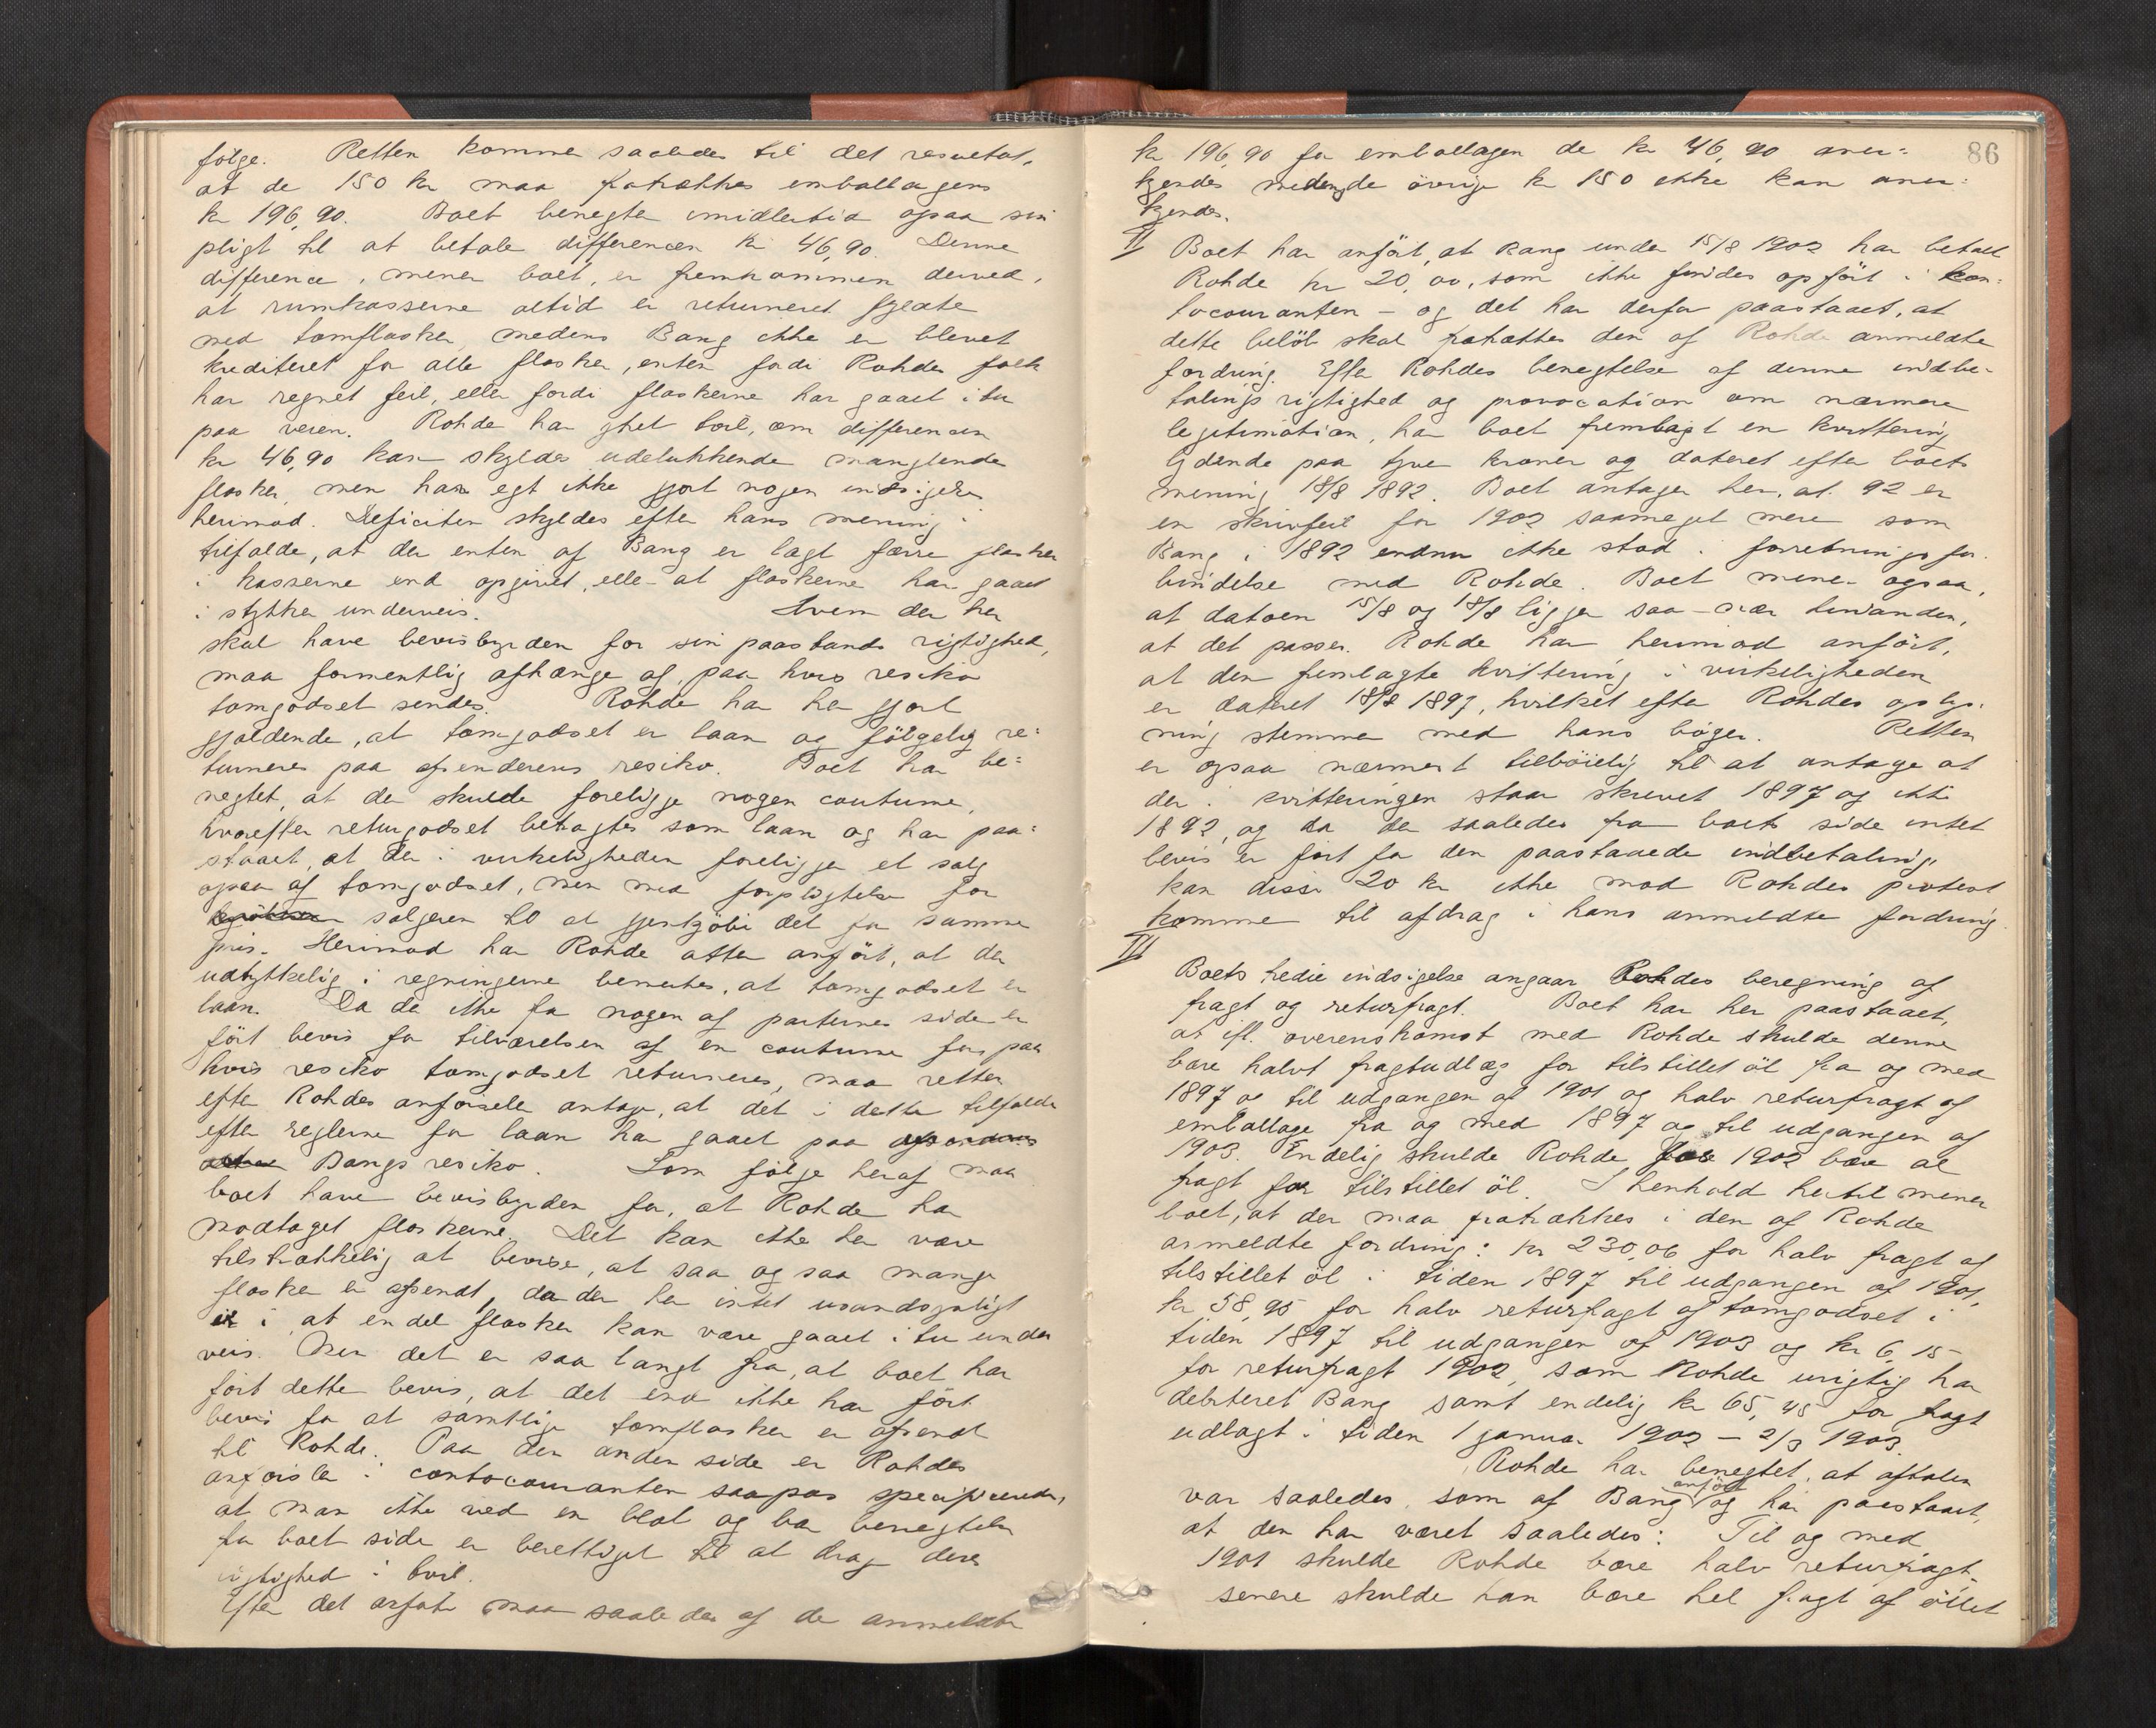 følge. Retten kommer saaledes til det resultat,
at de 150 kr maa fratrækkes emballagens
kr 196,90. Boet benegter imidlertid ogsaa sin
pligt til at betale differencen kr 46,90. Denne
difference, mener boet, er fremkommen derved,
at rumkasserne altid er returneret fyldte
med tomflasker, medens Bang ikke er blevet
krediteret for alle flasker, enten fordi Rohdes folk
har regnet feil, eller fordi flaskerne har gaaet itu
paa veien. Rohde har ytret tvil, om differencen
kr 46,90 kan skyldes udelukkende manglende
flasker, men har egt ikke gjort nogen indsigelse
herimod. Deficiten skyldes efter hans mening i
tilfælde, at der enten af Bang er lagt færre flasker
i kasserne end opgivet, eller at flaskerne har gaaet
i stykker underveis. Hvem der her
skal have bevisbyrden for sin paastands rigtighed,
maa formentlig afhænge af, paa hvis resiko
tomgodset sendes. Rohde har her gjort
gjældende, at tomgodset er laan og følgelig re=
turneres paa afsenderens resiko. Boet har be=
negtet, at der skulde foreligge nogen coutume,
hvorefter returgodset betragtes som laan og har paa=
staaet, at der i virkeligheden foreligger et salg
ogsaa af tomgodset, men med forpligtelse for
sælgeren til at gjenkjøbe det for samme
pris. Herimod har Rohde atter anført, at der
udtrykkelig i regningerne bemerkes, at tomgodset er
laan. Da der ikke fra nogen af parternes side er
ført bevis for tilværelsen af en coutume for, paa
hvis resiko tomgodset returneres, maa retten
efter Rohdes anførsele antage, at det i dette tilfælde
efter reglerne for laan har gaaet paa afsenderens
Bangs resiko. Som følge heraf maa
boet have bevisbyrden for, at Rohde har
modtaget flaskerne. Det kan ikke her være
tilstrækkelig at bevise, at saa og saa mange
flasker er afsendt, da der her intet usandsynligt
er i, at en del flasker kan være gaaet itu under
veis. Men det er saa langt fra, at boet har
ført dette bevis, at det end ikke har ført
bevis for at samtlige tomflasker er afsendt
til Rohde. Paa den anden side er Rohdes
anførsler i contocouranten saapas specificerede,
at man ikke ved en blot og bar benegtelse
fra boet side er berettiget til at drage deres
rigtighed i tvil.
Efter det anførte maa saaledes af de anmeldte
86
kr 196,90 for emballagen de kr 46,90 aner=
kjendes medens de øvrige kr 150 ikke kan aner=
kjendes.
II Boet har anført, at Bang under 15/8 1902 har betalt
Rohde kr 20,00, som ikke findes opført i kon=
tocouranten – og det har derfor paastaaet, at
dette beløb skal fratrættes den af Rohde anmeldte
fordring. Efter Rohdes benegtelse af denne indbe=
talings rigtighed og provocation om nærmere
legitimation, har boet fremlagt en kvittering
lydende paa tyve kroner og dateret efter boets
mening 18/8 1892. Boet antager her, at 92 er
en skrivfeil for 1902 saameget mere som
Bang i 1892 endnu ikke stod i forretningsfor=
bindelse med Rohde. Boet mener ogsaa,
at datoen 15/8 og 18/8 ligger saa nær hinanden,
at det passer. Rohde har herimod anført,
at den fremlagte kvittering i virkeligheden
er dateret 18/8 1897, hvilket efter Rohdes oplys=
ning stemmer med hans bøger. Retten
er ogsaa nærmest tilbøielig til at antage at
der i kvitteringen staar skrevet 1897 og ikke
1892, og da der saaledes fra boets side intet
bevis er ført for den paastaaede indbetaling,
kan disse 20 kr ikke mod Rohdes protest
komme til afdrag i hans anmeldte fordring.
III
Boets tredie indsigelse angaar Rohdes beregning af
fragt og returfragt. Boet har her paastaaet,
at ifl. overenskomst med Rohde skulde denne
bære halvt fragtudlæg for tilstillet øl fra og med
1897 og til udgangen af 1901 og halv returfragt af
emballage fra og med 1897 og til udgangen af
1903. Endelig skulde Rohde for 1902 bære al
fragt for tilstillet øl. I henhold hertil mener
boet, at der maa fratrækkes i den af Rohde
anmeldte fordring: kr 230,06 for halv fragt af
tilstillet øl i tiden 1897 til udgangen af 1901,
kr 58,95 for halv returfragt af tomgodset i
tiden 1897 til udgangen af 1903 og kr 6,15
for returfragt 1902, som Rohde urigtig har
debiteret Bang samt endelig kr 65,45 for fragt
udlagt i tiden 1 januar 1902 – 2/3 1903.
Rohde har benegtet, at aftalen
var saaledes, som af Bang anført og har paastaaet,
at den har været saaledes: Til og med
1901 skulde Rohde bære halv returfragt,
senere skulde han bære hel fragt af øllet